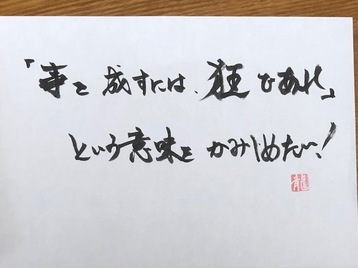 「事を成すには、狂であれ」
という意味をかみしめたい！